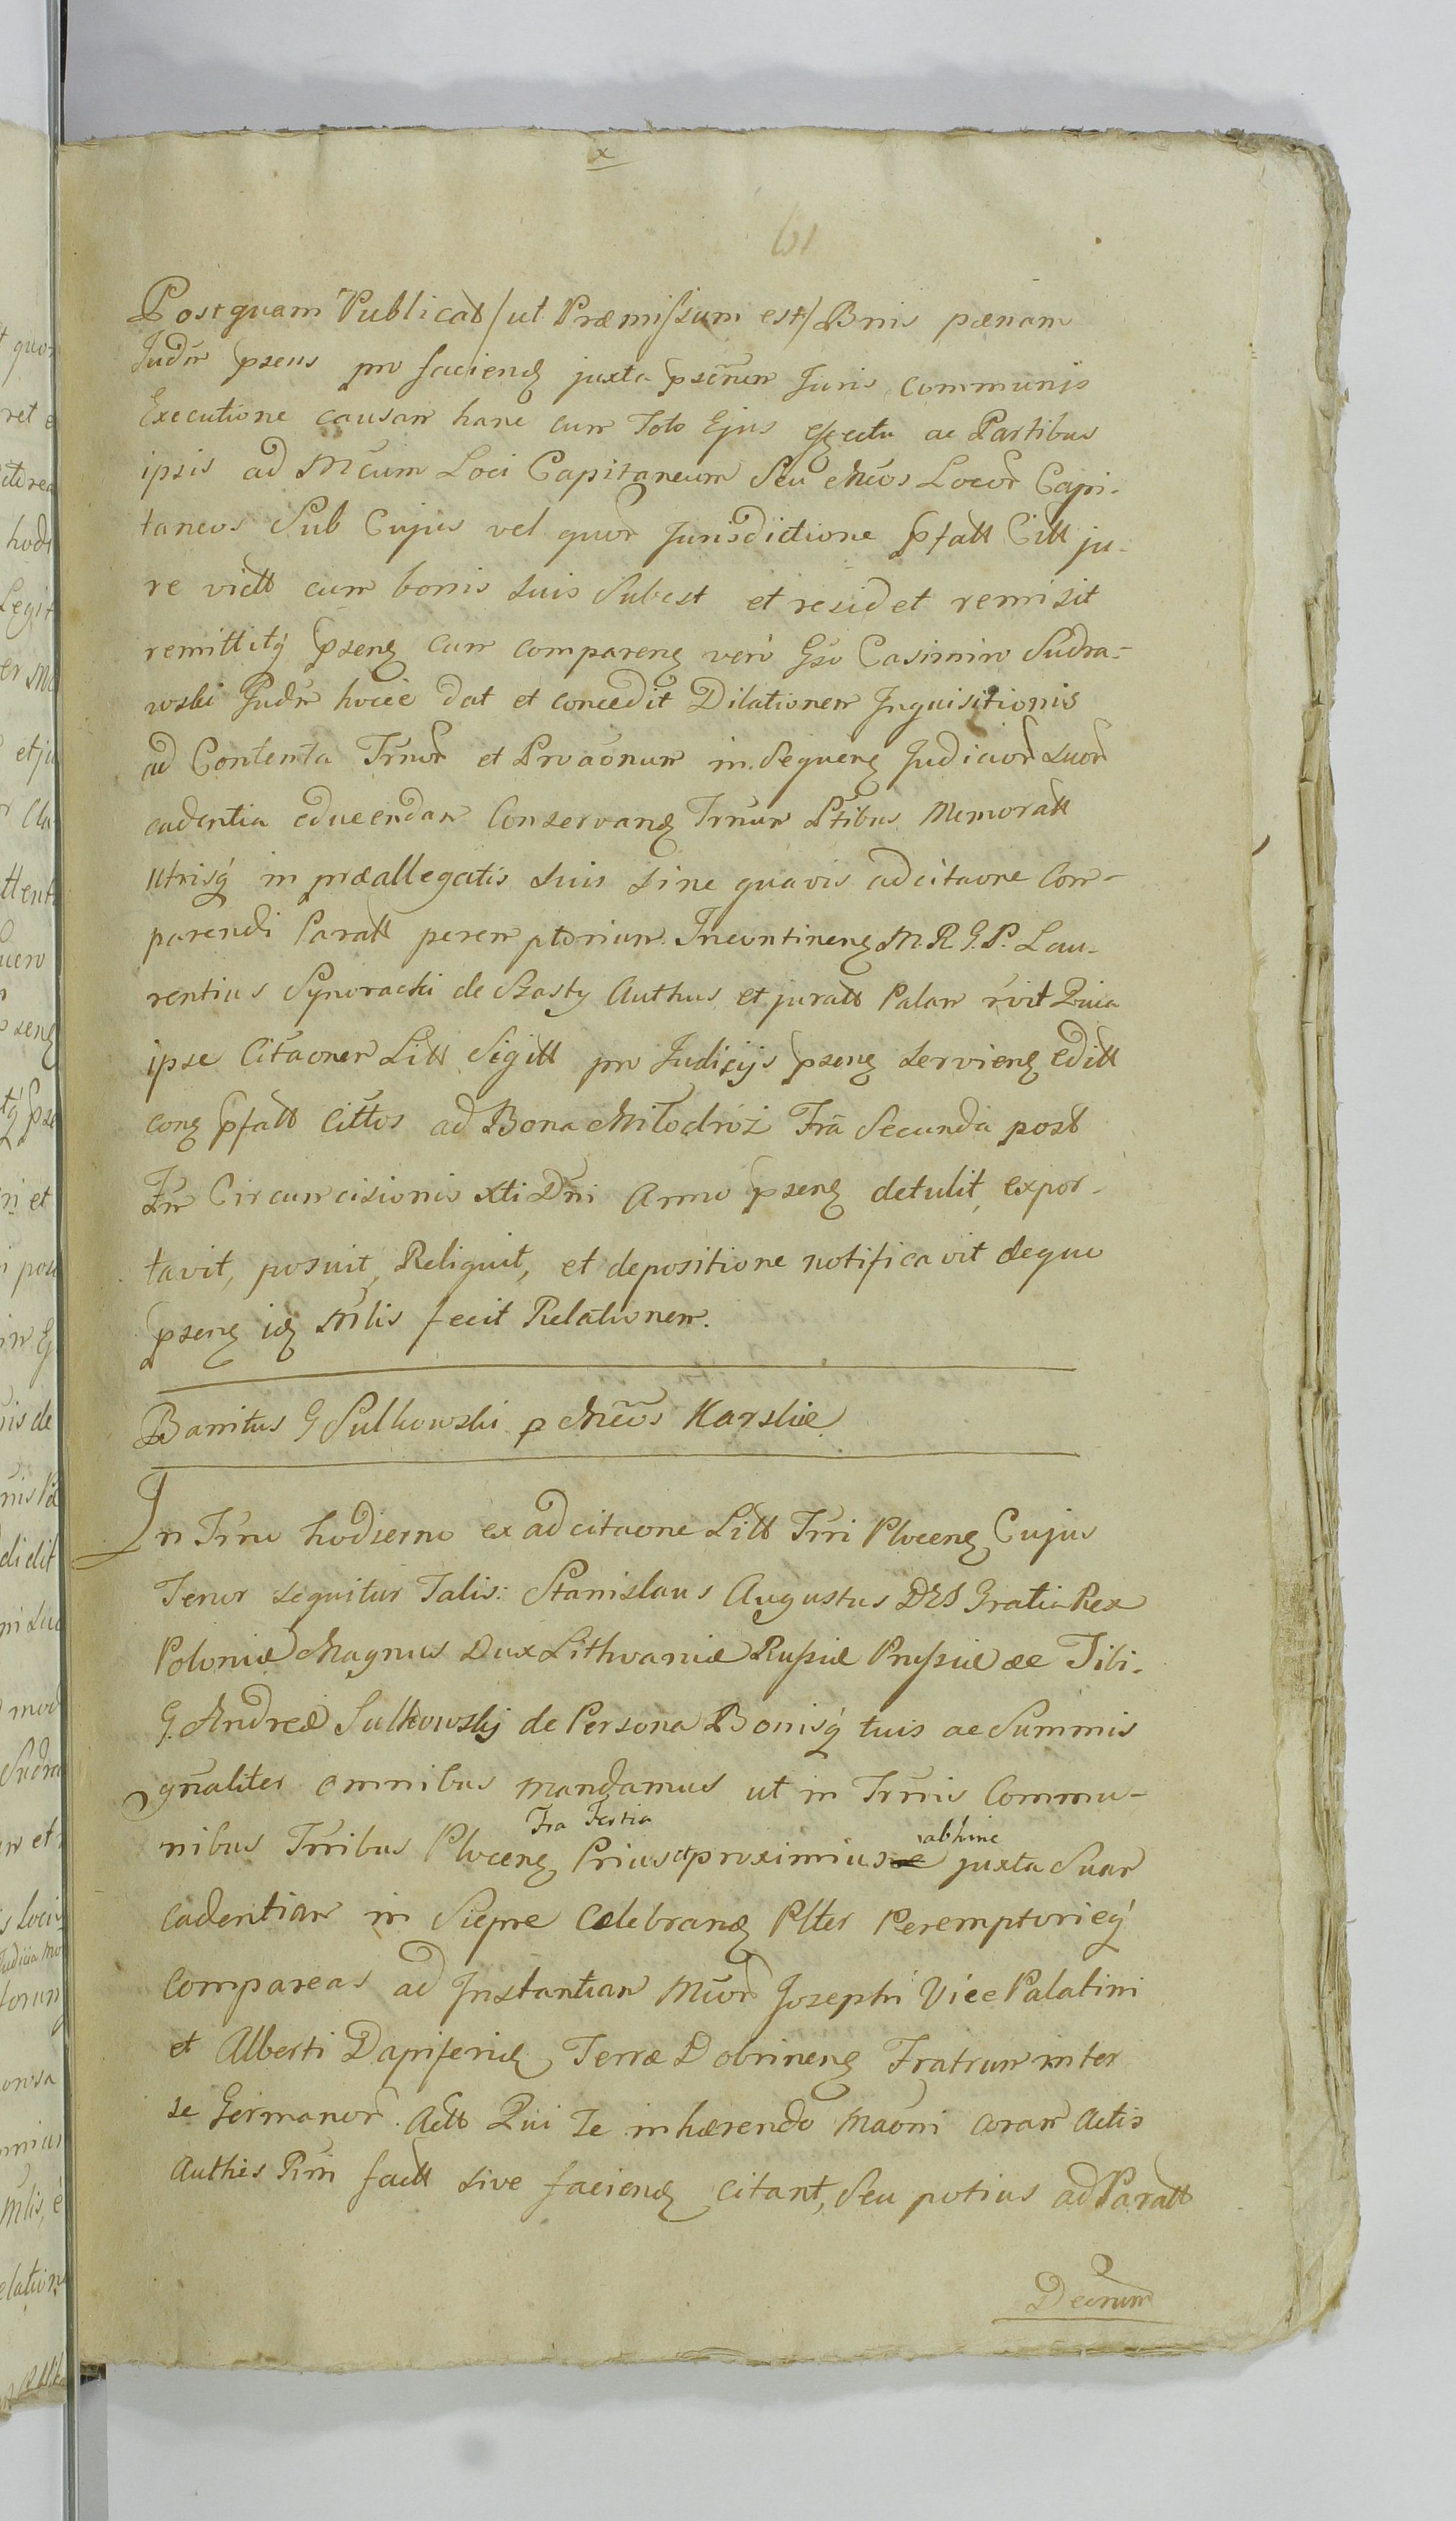 x
61
Postquam Publicatt /ut Præmissum est/ Bnis pænam
Judm pseus pro faciend juxta pscrum Juris communis
Executione causam hanc cum Toto Ejus effectu ac Partibus
ipsis ad Mcum Loci Capitaneum Seu Mcos Locor Capi-
taneos Sub Cujus vel quor Jurisdictione pfatt Citt ju-
re victt cum bonis suis Subest et residet remisit
remittitq psenz Cum comparenz vero Gso Casimiro Sudra-
wski Judm hocce dat et concedit Dilationem Inquisitionis
ad Contenta Trnor et Prvaonum in Sequenz Judicior suor
cadentia educendam Conservanz Trnum Ptibus Memoratt
utrisq in præallegatis suis sine quavis adcitaone Com-
parendi Paratt peremptorium. Incontinenz M. R. G. P. Lau-
rentius Synoracki de Szasty Authus et juratt Palam rvit Quia
ipse Citaonem Litt Sigitt pro Judicijs psenz servienz editt
conz pfatt cittos ad Bona Miłodróż Fra Secunda post
Fm Circumcisionis Xti Dni Anno psenz detulit, expor-
tavit, posuit, Reliquit, et depositione notificavit deque
psenz idz Mlis fecit Relationem.
Banitus G Sulkowski p Mcos Karskie
In Trno hodierno ex adcitaone Litt Trri Plocenz Cujus
Tenor sequitur Talis: Stanislaus Augustus DEI Gratia Rex
Poloniæ Magnus Dux Lithvaniæ Russiæ Prussiæ &c Tibi
G. Andreæ Sulkowskj de Persona Bonisq tuis ac Summis
gnaliter omnibus mandamus ut in Trnis Commu-
nibus Trribus Plocenz Fra Tertia Prius et proximius abhinc juxta Suam
cadentiam in Sierpc Celebranz Plter Peremptorieq
Compareas ad Instantiam Mcor Josephi Vice Palatini
et Alberti Dapiferid Terræ Dobrinenz Fratrum inter
se Germanor Actt Qui Te inhærendo Maoni coram Actis
Authis Pnri factt sive faciend citant, Seu potius ad Paratt
Decrum